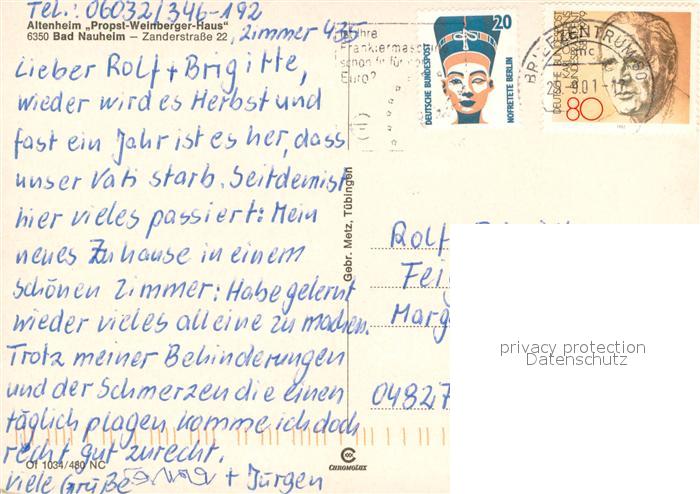 Tel.: 06032/346-192
Altenheim „Propst-Weinberger-Haus"
6350 Bad Nauheim — Zanderstraße 22, Zimmer 435
Lieber Rolf + Brigitte,
wieder wird es Herbst und
fast ein Jahr ist es her, dass
unser Vati starb. Seitdem ist
hier vieles passiert: Mein
neues Zuhause in einem
schönen Zimmer: Habe gelernt
wieder vieles alleine zu machen.
Trotz meiner Behinderungen
und der Schmerzen die einen
täglich plagen komme ich doch
recht gut zurecht.
Viele Grüße + Jürgen
Of 1034/480 NC
Gebr. Metz, Tübingen
CHROMOLUX
Ihre
Frankiermaschine
schon fit für
Euro?
20
DEUTSCHE BUNDESPOST
NOFRETETE BERLIN
BRIEFZENTRUM
01-1
DEUTSCHE BUNDESPOST
80
Rolf
Fei
Marg
04827
privacy protection
Datenschutz